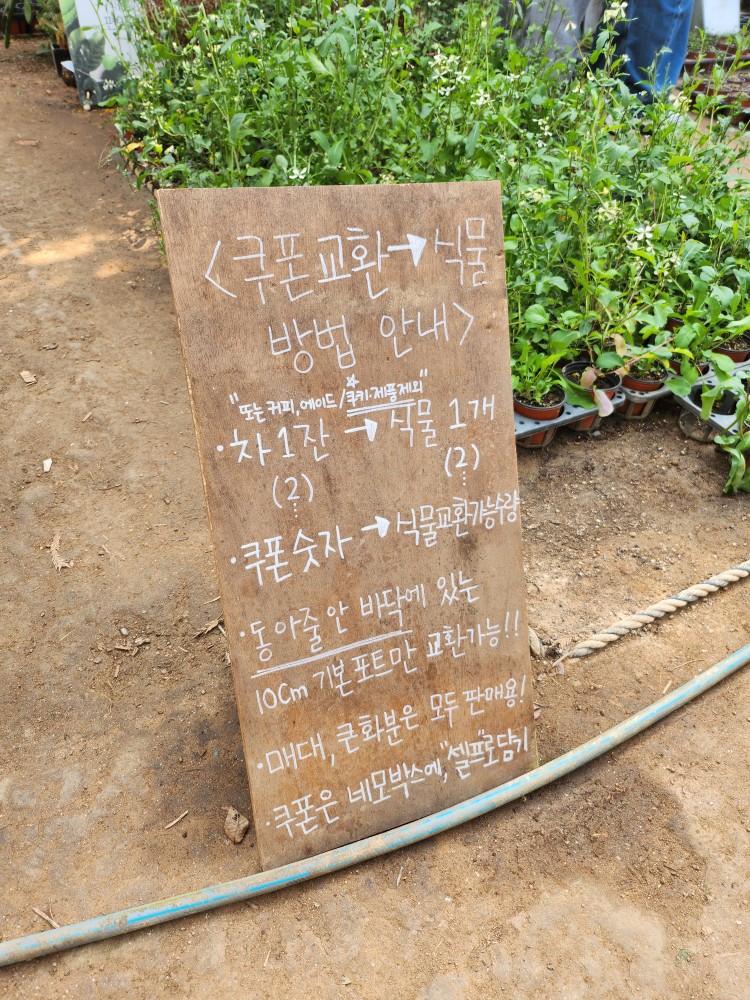 <쿠폰교환→식물
방법 안내>
"또는 커피, 에이드/☆쿠키·제품제외"
·차 1잔 → 식물 1개
(2) (2)
·쿠폰 숫자 → 식물교환가능수량
·동아줄 안 바닥에 있는
10cm 기본포트만 교환가능!!
·매대, 큰화분은 모두 판매용!
·쿠폰은 네모박스에, "셀프"로 담기